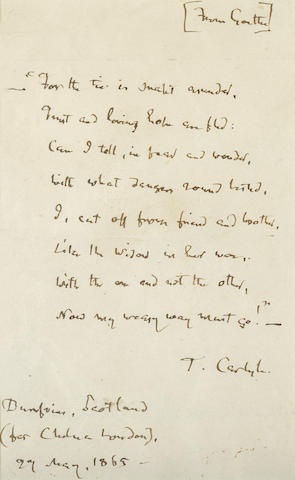 [From Goethe]
— "For the tie is snapt asunder,
Trust and loving hope are fled:
Can I tell, in fear and wonder,
With what dangers round bested,
I, cut off from friend and brother,
Like the widow in her woe,
With the one and not the other,
Now my weary way must go!" —
T. Carlyle.
Dumfries, Scotland
(for Chelsea London),
29 May, 1865 —